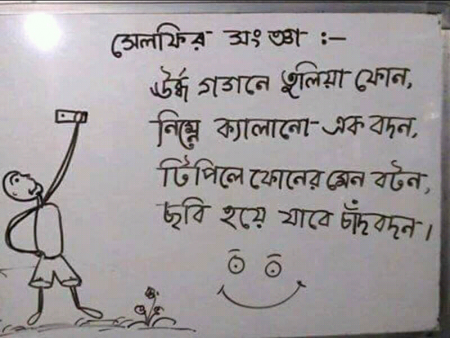 সেলফির সংজ্ঞা :-
ঊর্দ্ধ গগনে তুলিয়া ফোন,
নিম্নে ক্যালানো-এক বদন,
টিপিলে ফোনের মেন বটন,
ছবি হয়ে যাবে চাঁদবদন।